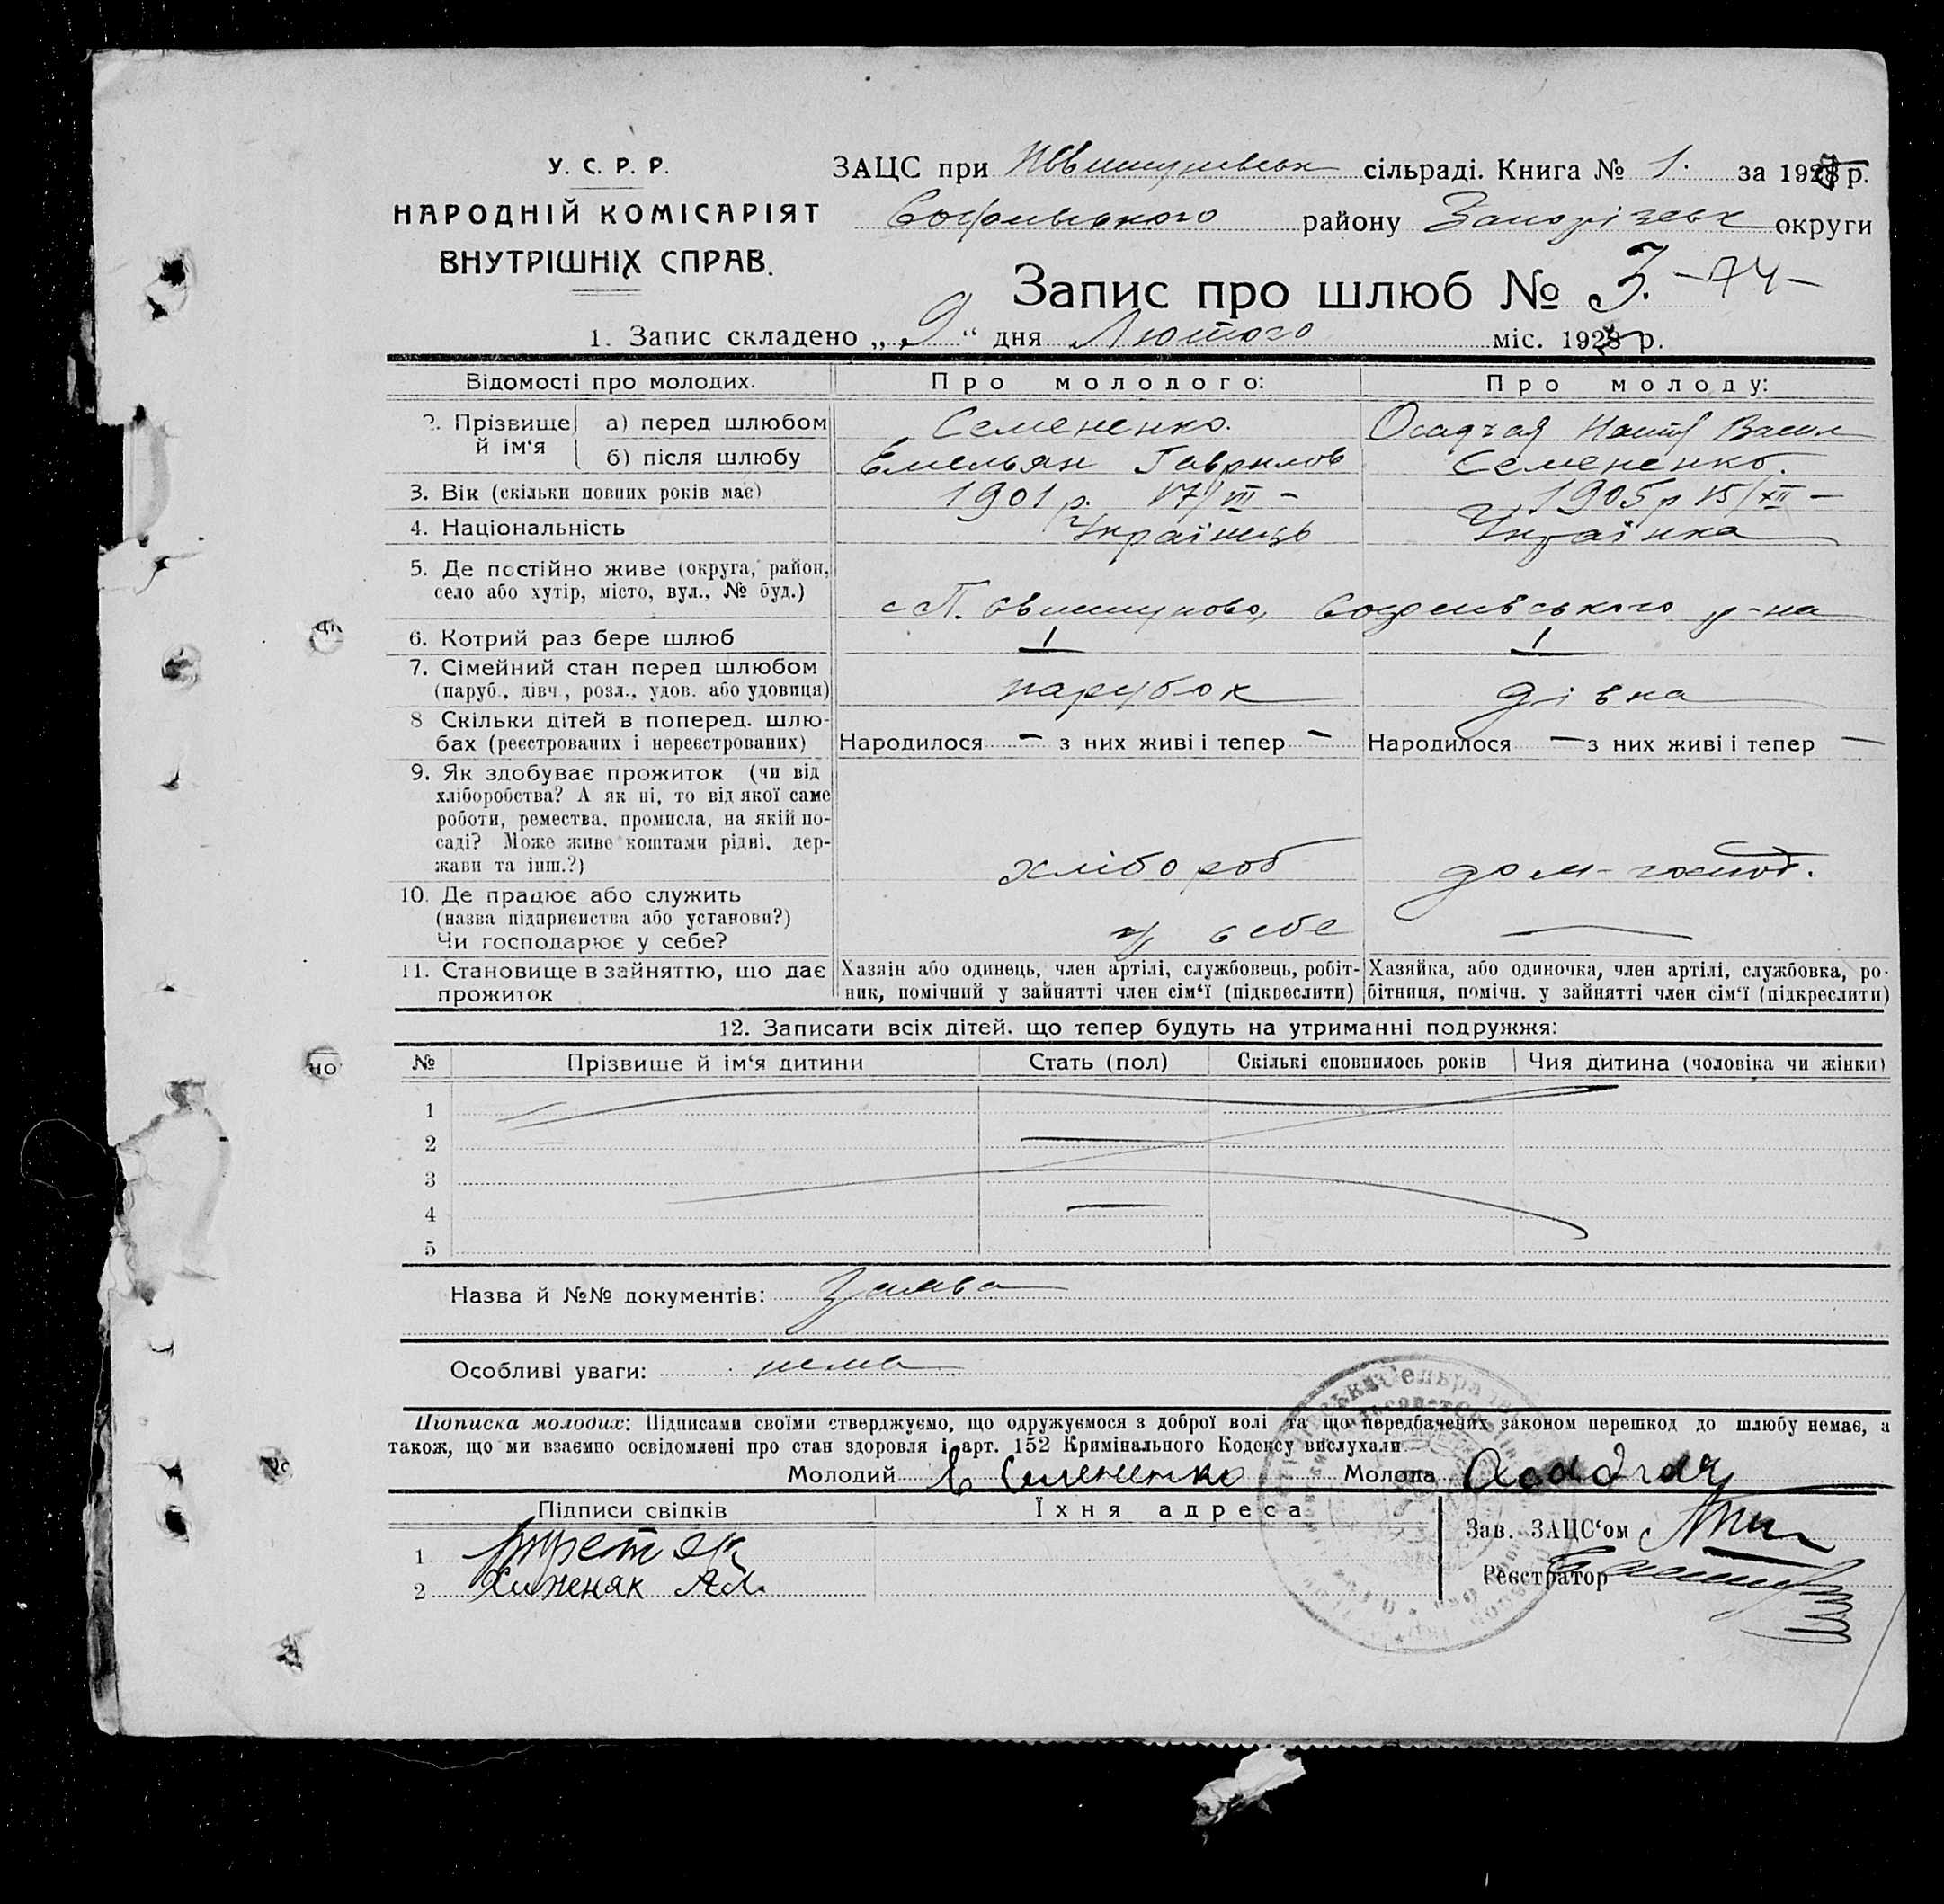 У. С. Р. Р.
НАРОДНІЙ КОМІСАРІЯТ
ВНУТРІШНІХ СПРАВ.
ЗАЦС при сільраді. Книга № 1. за 192 р.
району Запорізськ округи
Запис про шлюб № 3. -74-
1. Запис складено „ 9 “ дня Лютого міс. 192 р.
Відомості про молодих. Про молодого: Про молоду:
2. Прізвище й ім‘я а) перед шлюбом Семененко. Осадчая Васил
б) після шлюбу Емельян Гаврилов Семененко.
3. Вік (скільки повних років має) 1901 р. 17/VII – 1905 р 15/XII –
4. Національність Українець Українка
5. Де постійно живе (округа, район,
село або хутір, місто, вул., № буд.) с р-на
6. Котрий раз бере шлюб 1 1
7. Сімейний стан перед шлюбом
(паруб., дівч., розл., удов. або удовиця) парубок дівка
8 Скільки дітей в поперед. шлю-
бах (реєстрованих і нереєстрованих) Народилося – з них живі і тепер – Народилося – з них живі і тепер –
9. Як здобуває прожиток (чи від
хліборобства? А як ні, то від якої саме
роботи, ремества, промисла, на якій по-
саді? Може живе коштами рідні, дер-
жави та інш.?) хлібороб дом-господ.
10. Де працює або служить
(назва підприємства або установи?)
Чи господарює у себе? у себе —
11. Становище в зайняттю, що дає
прожиток
Хазяін або одинець, член артілі, службовець, робіт-
ник, помічний у зайнятті член сім‘ї (підкреслити)
Хазяйка, або одиночка, член артілі, службовка, ро-
бітниця, помічн. у зайнятті член сім‘ї (підкреслити)
12. Записати всіх дітей, що тепер будуть на утриманні подружжя:
№ Прізвище й ім‘я дитини Стать (пол) Скількі сповнилось років Чия дитина (чоловіка чи жінки)
1
2
3
4
5
Назва й №№ документів: Заява
Особливі уваги: нема
Підписка молодих: Підписами своїми стверджуємо, що одружуємося з доброї волі та що передбачених законом перешкод до шлюбу немає, а
також, що ми взаємно освідомлені про стан здоровля і арт. 152 Кримінального Кодексу вислухали.
Молодий Е Семененко Молода Осадчая
Підписи свідків Їхня адреса Зав. ЗАЦС‘ом
1 Третяк
2 Хиженяк Ал. Реєстратор